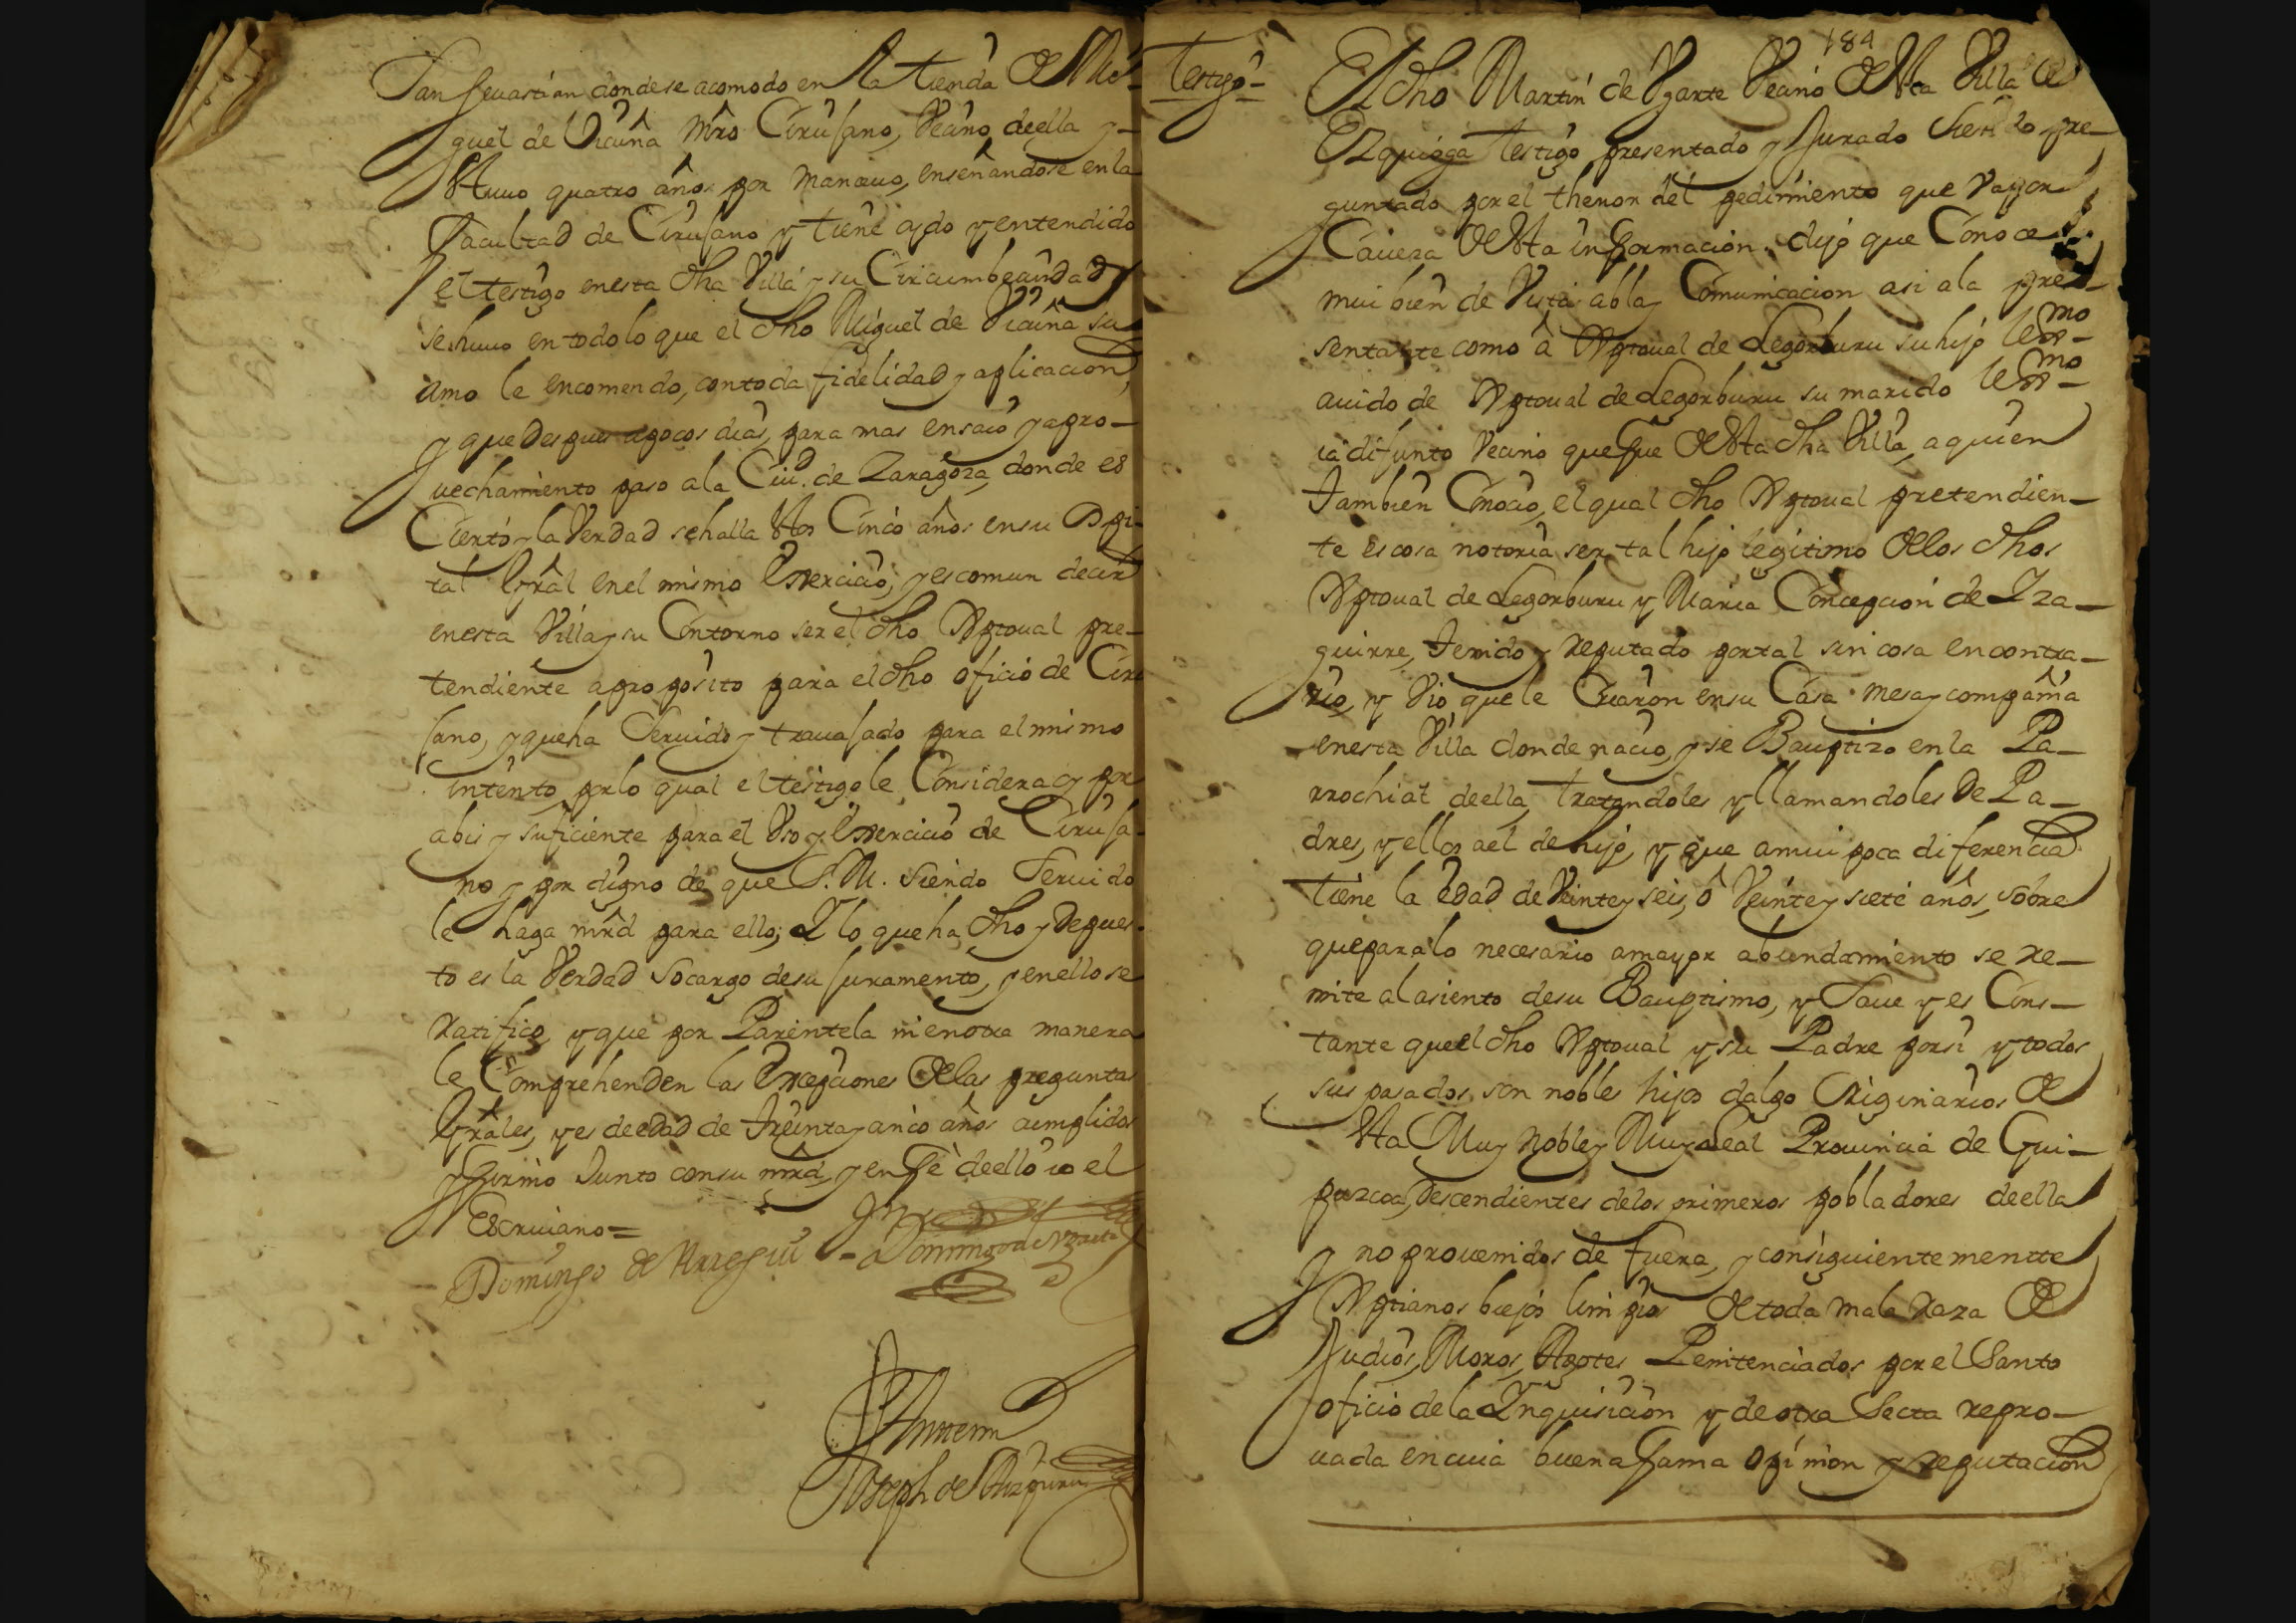 San Sevastian donde se acomodo en la tienda de Mi-
guel de Vicuña Mro Cirujano, Vecino de ella y
estuuo quatro años por Manceuo, enseñandose en la
Facultad de Cirujano y tiene oydo y entendido
el testigo en esta dha Villa y su Circumbecindad
se huuo en todo lo que el dho Miguel de Vicuña su
amo le encomendo, con toda fidelidad y aplicacion,
y que despues a pocos dias, para mas ensaio y apro-
uechamiento paso a la Ciud. de Zaragoza, donde es
Cierto y la Verdad se halla estos Cinco años en su Ospi-
tal Gral en el mismo Exercicio; y es comun decir
en esta Villa y su Contorno ser el dho Xptoual pre-
tendiente a proposito para el dho oficio de Ciru
jano, y que ha Seruido y trauajado para el mismo
intento por lo qual el testigo le Considera por
abil y suficiente para el Vso y Exercicio de Ciruja-
no y por digno de que S. M. siendo Seruido
le haga mrd para ello; Y lo que ha dho y depues-
to es la Verdad so cargo de su juramento, y en ello se
ratifico, y que por Parentela ni en otra manera
le Comprehenden las Excepciones de las preguntas
Grales, y es de edad de treinta y cinco años cumplidos
y firmo Junto con su mrd, y en fe de ello io el
Escriuano =
Domingo de Arregui - Domingo de Vgarte
Ante mi
Joseph de Aizpuru
184
Testigo -
El dho Martin de Vgarte Vecino de esta Villa de
Ezquioga testigo presentado y Jurado Siendo pre-
guntado por el thenor del pedimiento que va por
Caueza de esta informacion. dijo que Conoce
mui bien de Vista abla y Comunicacion asi a la pre-
sentante como â Xptoual de Legorburu su hijo lexmo
auido de Xptoual de Legorburu su marido lexmo
ia difunto Vecino que fue de esta dha Villa, a quien
tambien Conocio, el qual dho Xptoual pretendien-
te es cosa notoria ser tal hijo legitimo de los dhos
Xptoual de Legorburu y Maria Concepcion de Yza-
guirre, tenido y reputado por tal sin cosa en contra-
rio, y Vio que le Criaron en su Casa Mesa y compañia
en esta Villa donde nacio, y se Bauptizo en la Pa-
rrochial de ella, tratandoles y llamandoles de Pa-
dres, y ellos a el de hijo, y que a mui poca diferencia
tiene la edad de Veinte y seis, ô Veinte y siete años, sobre
que para lo necesario a mayor abundamiento se re-
mite al asiento de su Bauptismo, y Saue y es Cons-
tante que el dho Xptoual y su Padre por si y todos
sus pasados son nobles hijos dalgo Originarios de
esta Muy Noble y Muy Leal Prouincia de Gui-
puzcoa, Descendientes de los primeros pobladores de ella
y no prouenidos de fuera, y consiguientementte
Xptianos biejos limpios de toda mala Raza de
Judios, Moros, Agotes Penitenciados por el Santo
oficio de la Ynquisicion y de otra Secta repro-
uada en cuia buena fama opinion y reputacion